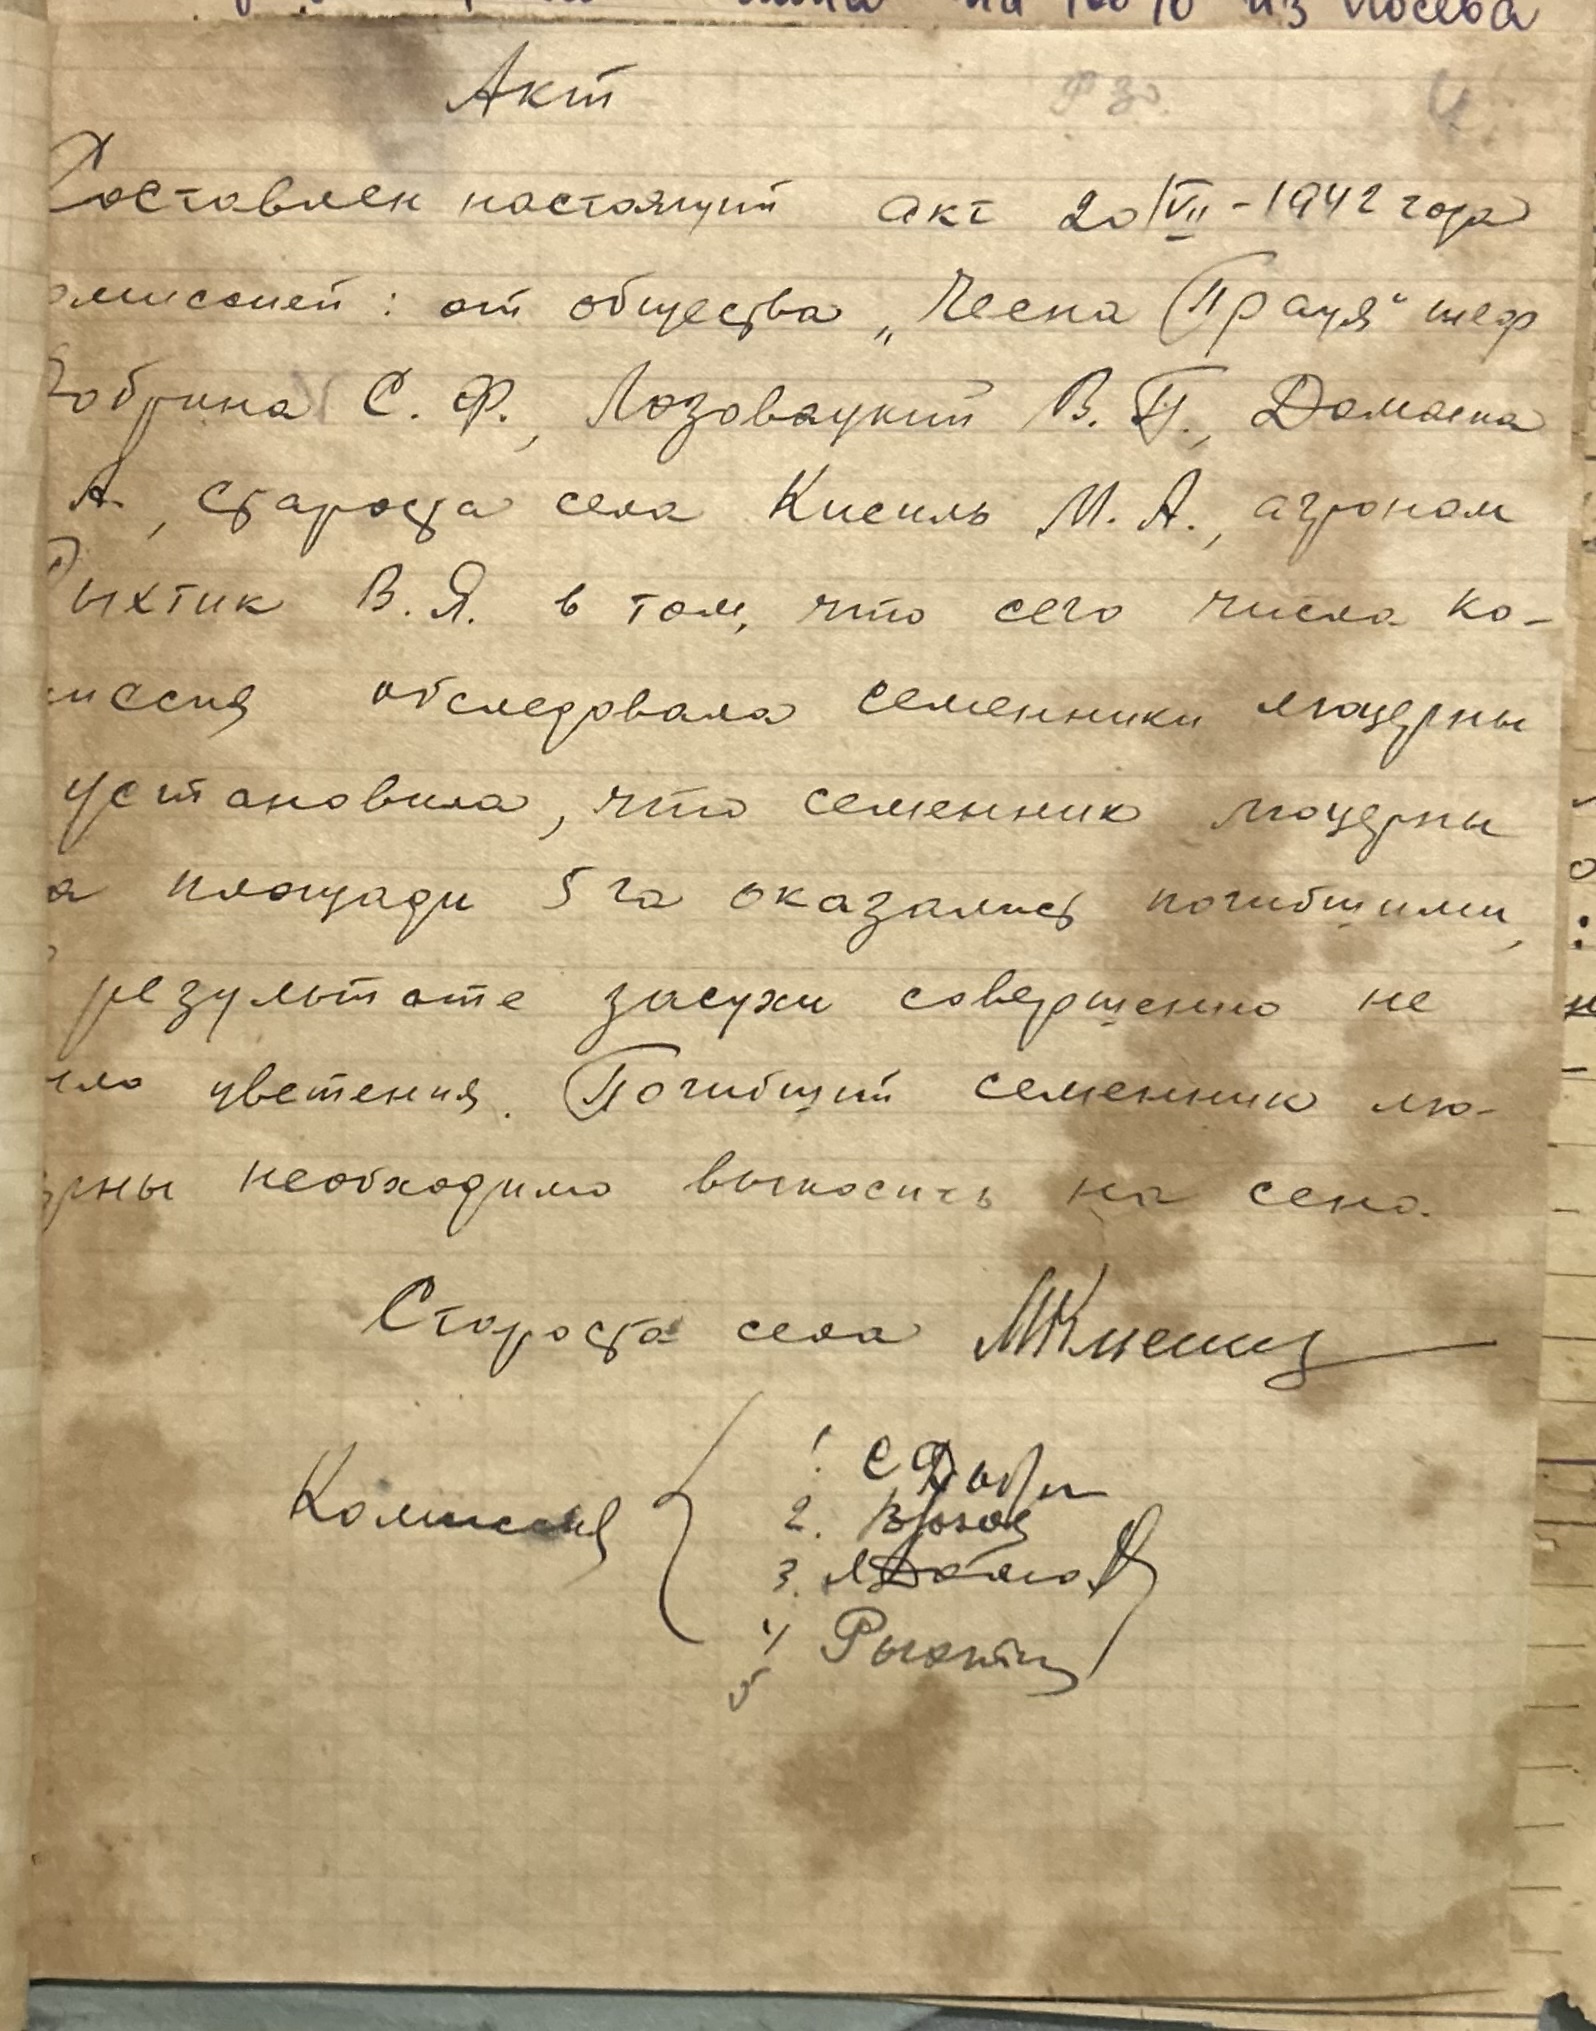 на 100% из посева
Акт
Составлен настоящий акт 20/VII - 1942 года
омиссией: от общества „Чесна Праця" шеф
Добрина С. Ф., Лозовацкий В. П., Домаска
А., староста села Кисиль М. А., агроном
Рыхтик В. Я. в том, что сего числа ко-
миссия обследовала семенники люцерны
установила, что семенник люцерны
а площади 5 га оказались погибшими,
результате засухи совершенно не
ыло цветения. Погибший семенник лю-
ерны необходимо выкосить на сено.
Староста села МКисиль
Комиссия
1.
2.
3.
4 Рыхтик
5